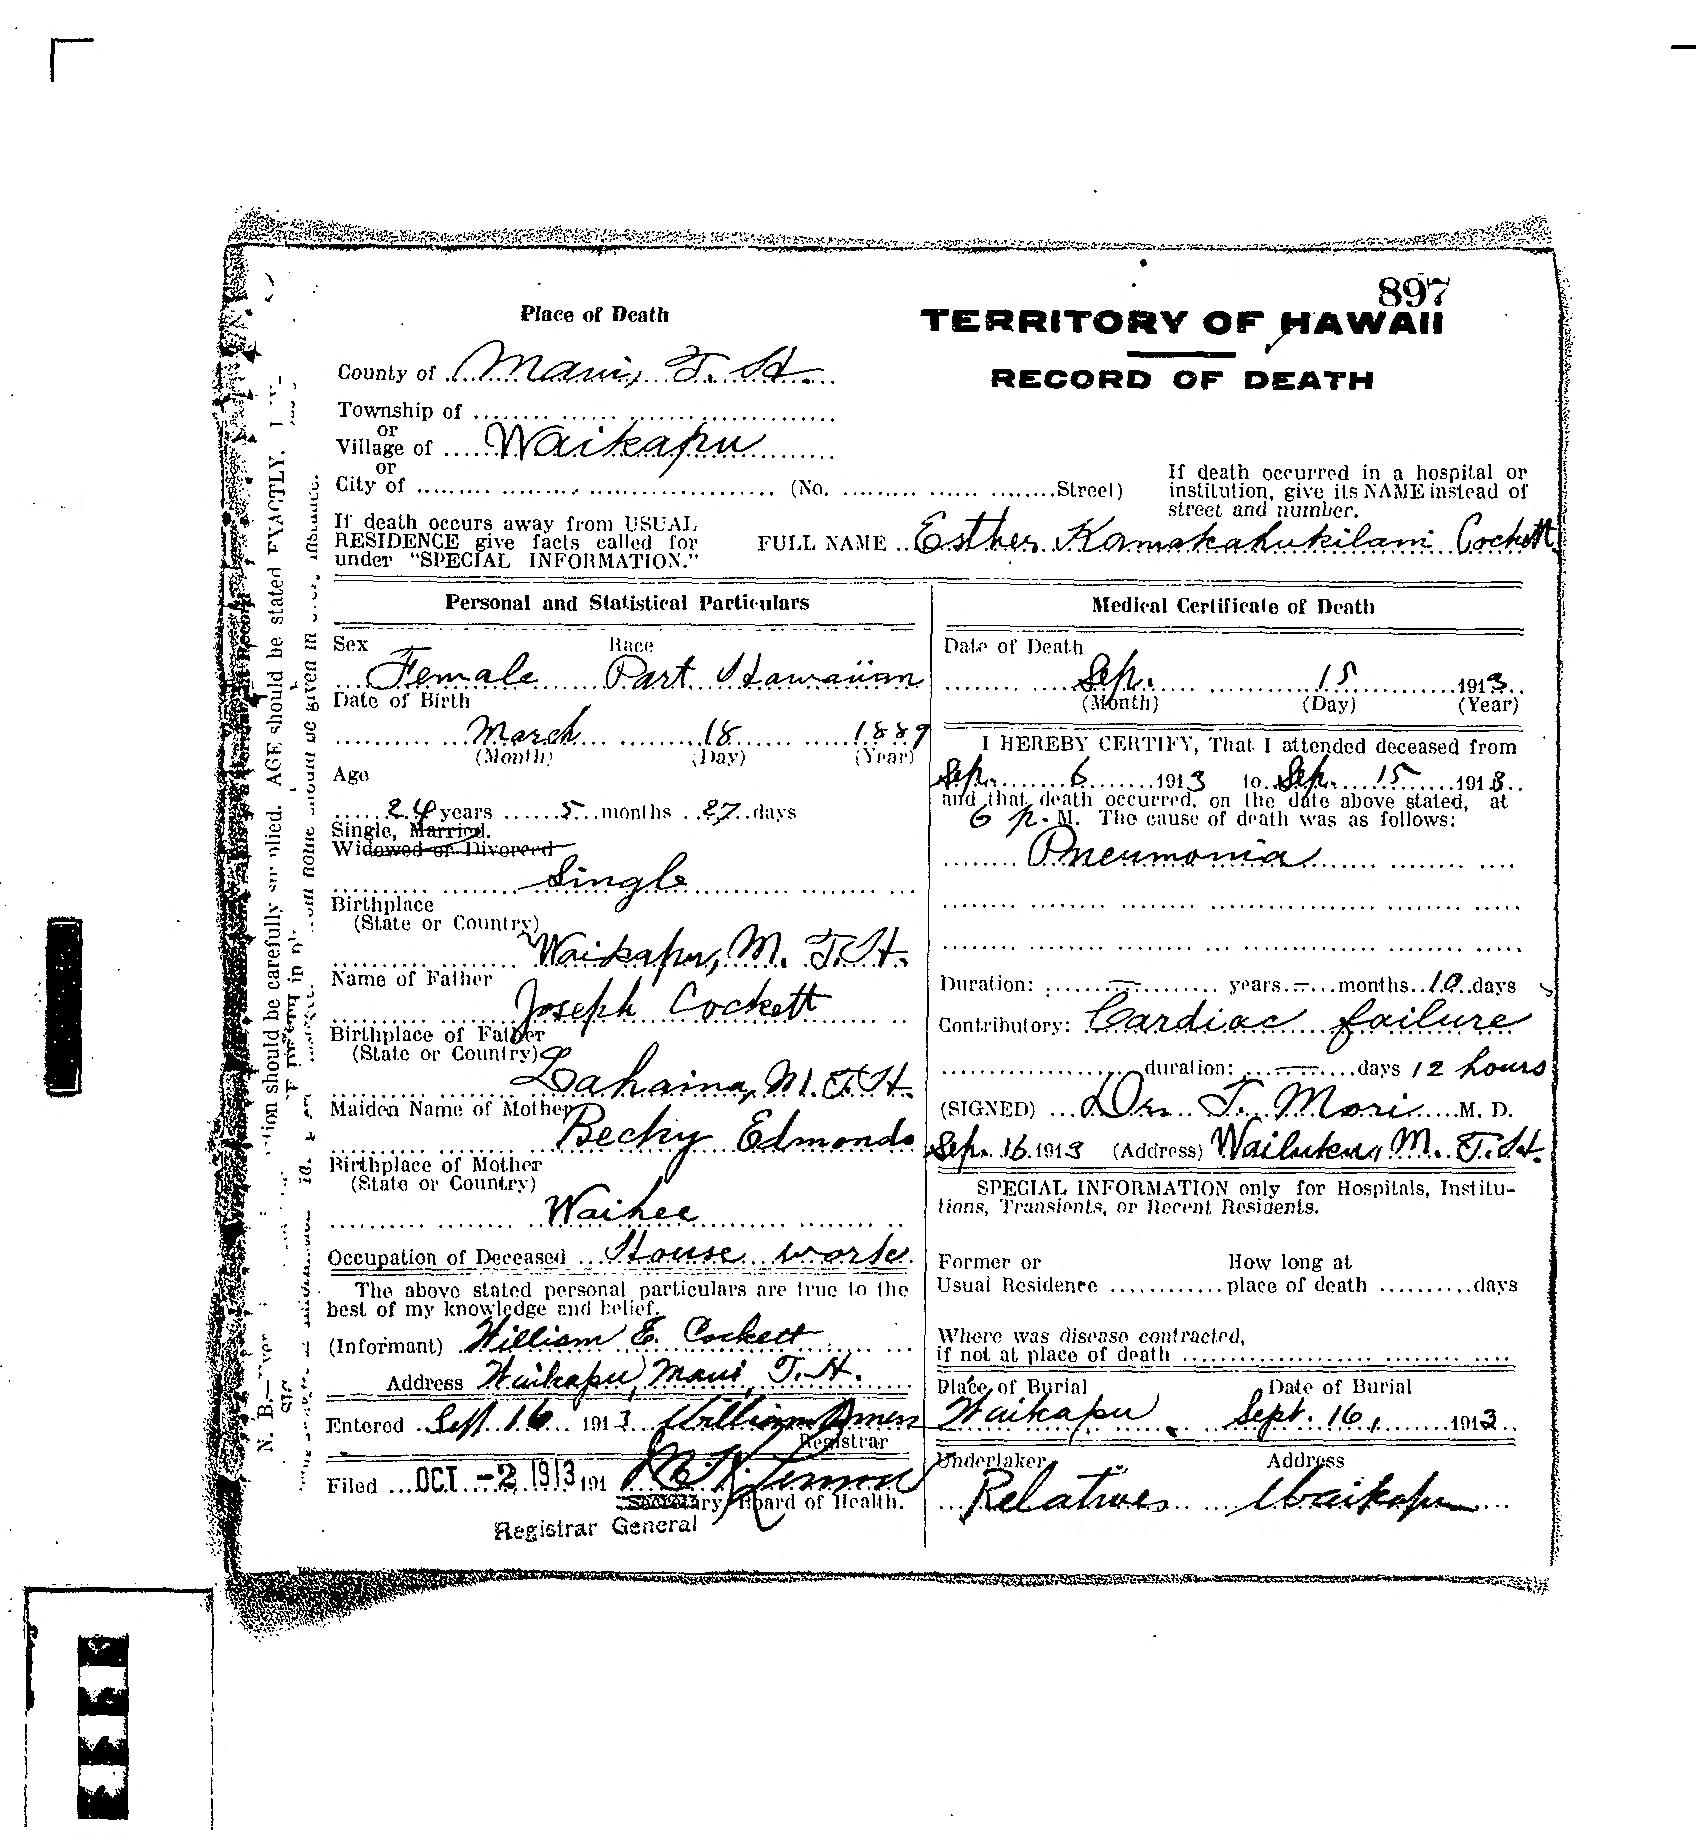 897
Place of Death
TERRITORY OF HAWAII
RECORD OF DEATH
County of Maui, T. H.
Township of
or
Village of Waikapu
or
City of (No. Street)
If death occurred in a hospital or
institution, give its NAME instead of
street and number.
If death occurs away from USUAL
RESIDENCE give facts called for
under "SPECIAL INFORMATION."
FULL NAME Esther Kamakahukilani Cockett
Personal and Statistical Particulars
Sex Race
Female Part Hawaiian
Date of Birth
March 18 1889
(Month) (Day) (Year)
Age
24 years 5 months 27 days
Single, Married.
Widowed or Divorced
Single
Birthplace
(State or Country)
Waikapu, M. T. H.
Name of Father
Joseph Cockett
Birthplace of Father
(State or Country)
Lahaina, M. T. H.
Maiden Name of Mother
Becky Edmonds
Birthplace of Mother
(State or Country)
Waihee
Occupation of Deceased House work
The above stated personal particulars are true to the
best of my knowledge and belief.
(Informant) William E. Cockett
Address Waikapu, Maui, T. H.
Entered Sept 16 1913 William
Registrar
Filed OCT -2 1913 191
Secretary Board of Health.
Registrar General
Medical Certificate of Death
Date of Death
Sep. 15 1913
(Month) (Day) (Year)
I HEREBY CERTIFY, That I attended deceased from
Sep. 6 1913 to Sep. 15 1913
and that death occurred, on the date above stated, at
6 p. M. The cause of death was as follows:
Pneumonia
Duration: — years — months 10 days
Contributory: Cardiac failure
duration: — days 12 hours
(SIGNED) Dr. T. Mori M. D.
Sep. 16 1913 (Address) Wailuku, M. T. H.
SPECIAL INFORMATION only for Hospitals, Institu-
tions, Transients, or Recent Residents.
Former or How long at
Usual Residence place of death days
Where was disease contracted,
if not at place of death
Place of Burial Date of Burial
Waikapu Sept. 16, 1913
Undertaker Address
Relatives Waikapu
N. B.
tion should be carefully supplied. AGE should be stated EXACTLY.